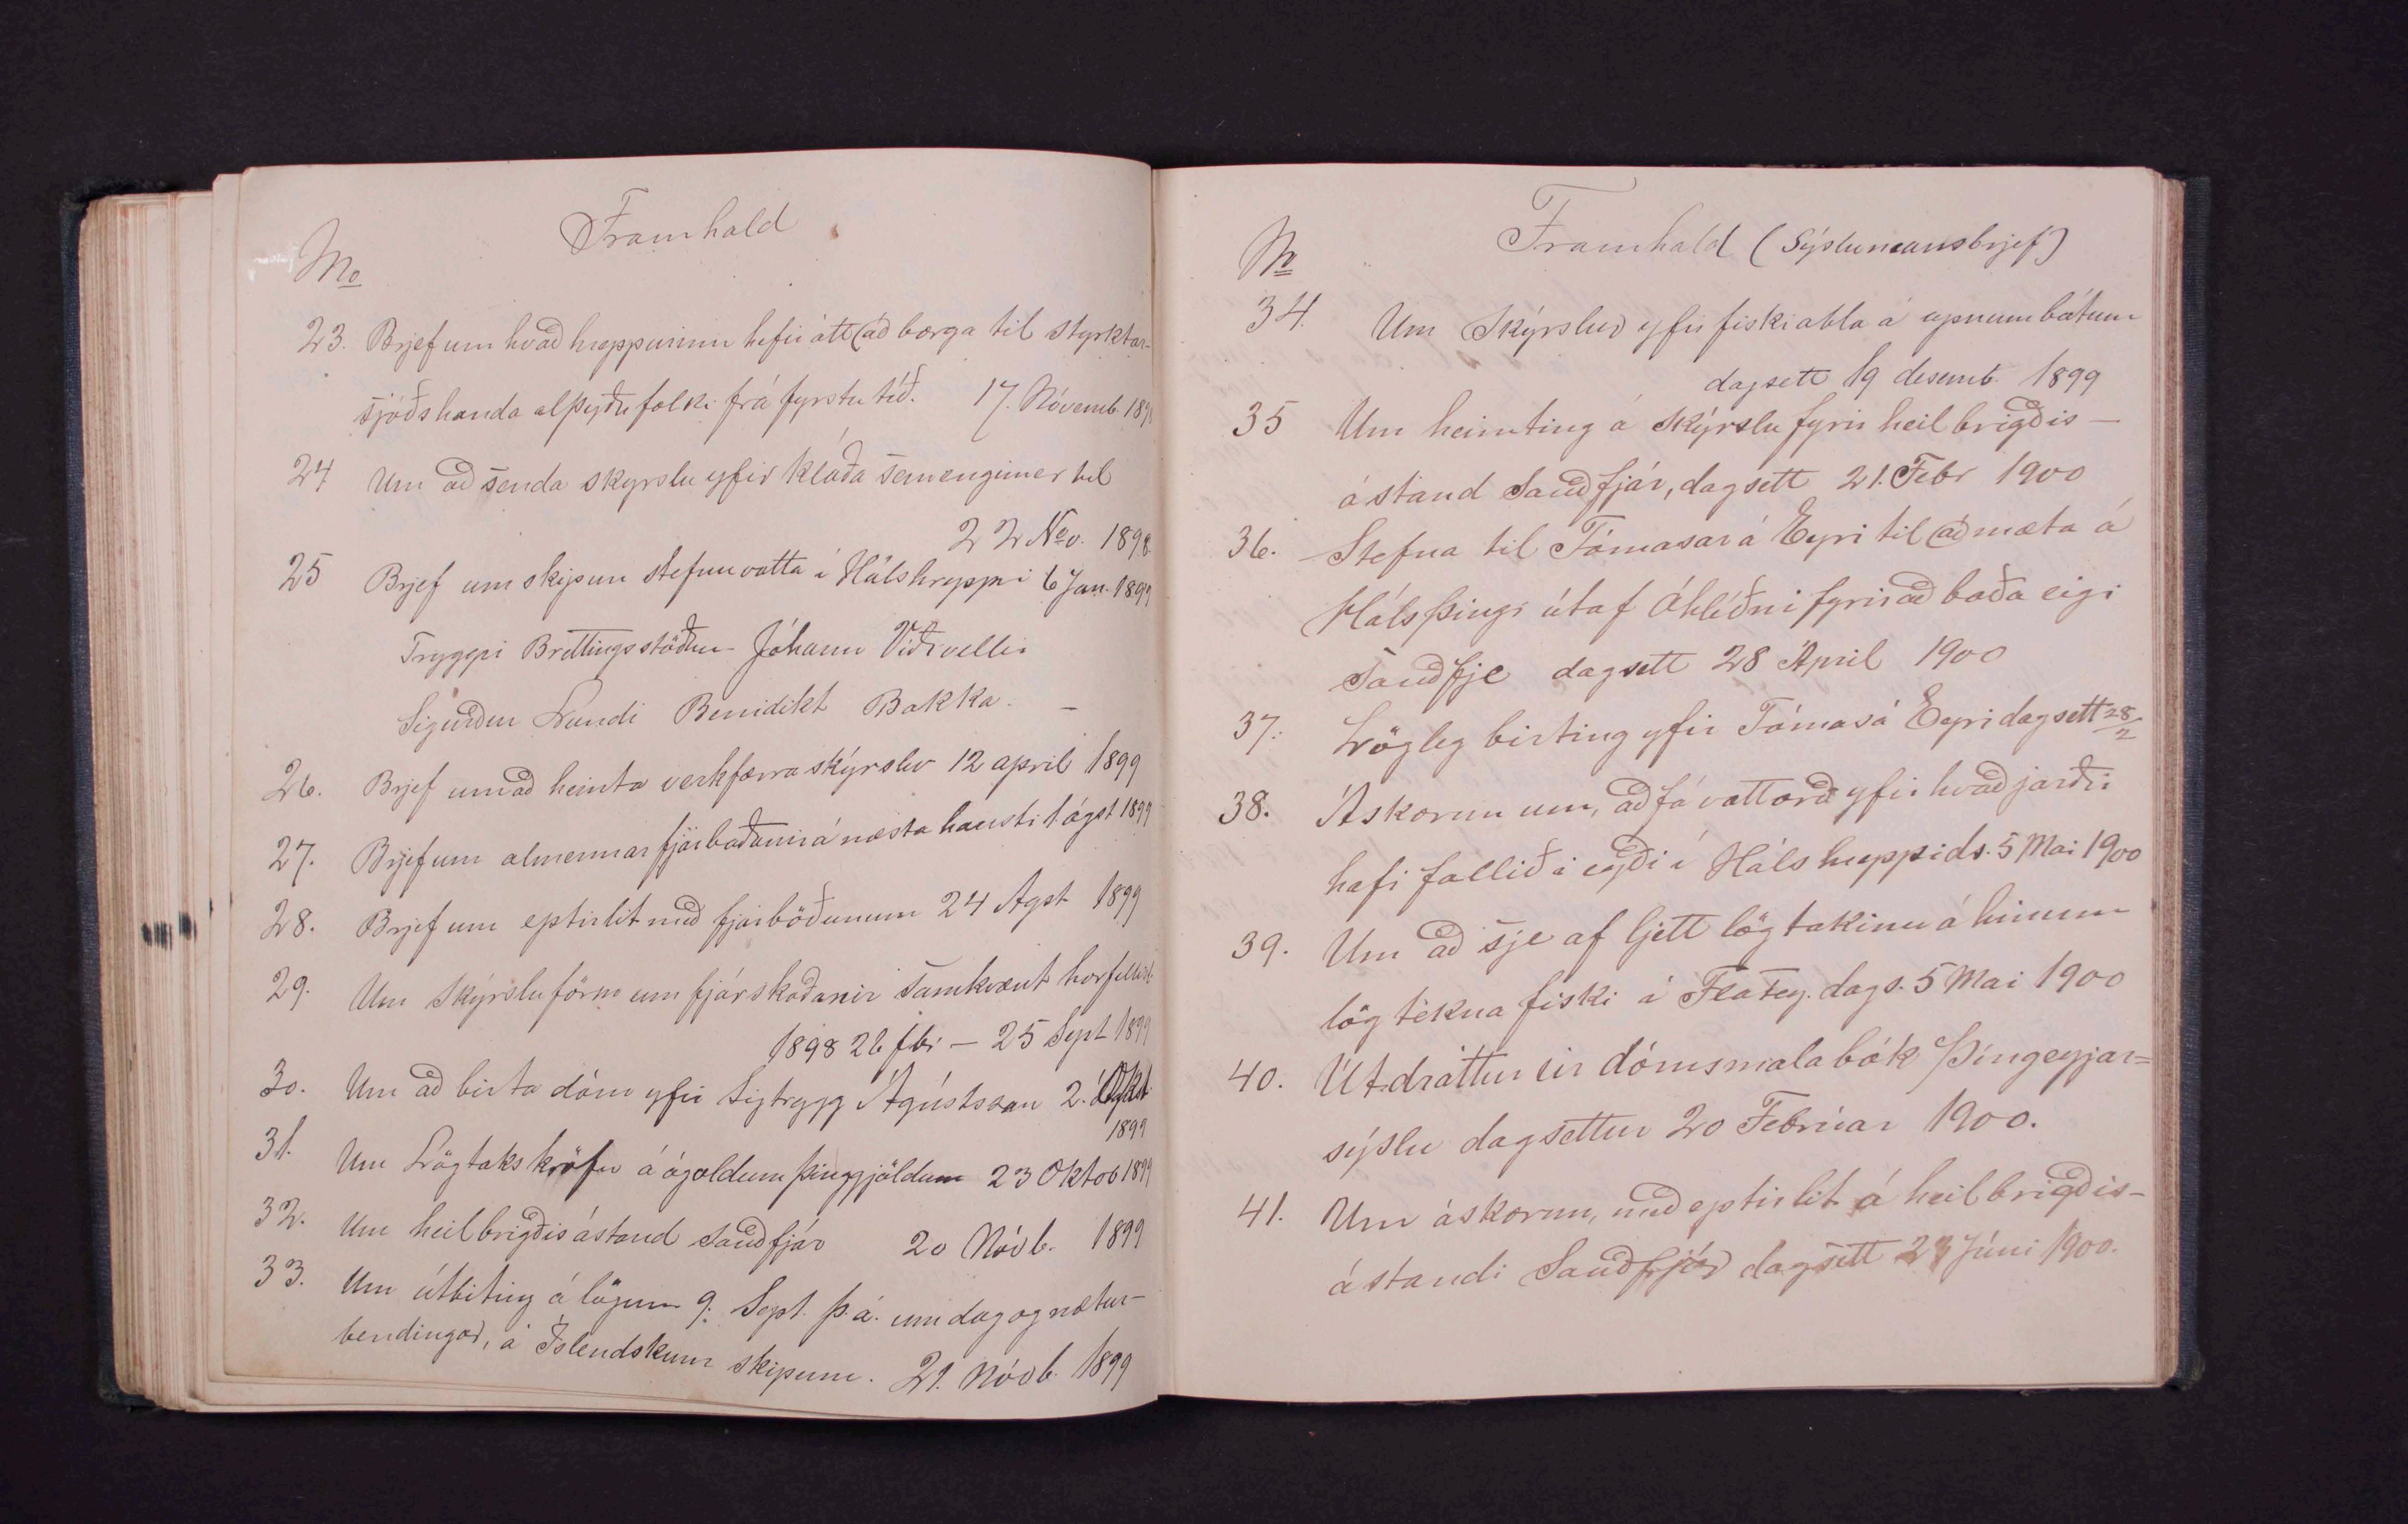 Framhald
No
23. Brjef um hvað hreppurinn hefir átt að borga til styrktar-
sjóðs handa alþyðufolki frá fyrstu tíð. 17. Nóvemb. 189
24 Um að senda skyrslu yfir kláða sem enginn er til
22 Nov. 1898.
25 Brjef um skipun stefnuvotta í Hálshreppi 6 Jan. 1899
Tryggvi Brettingsstöðum Jóhann Viðivellir
Sigurður Lundi Benidikt Bakka. —
26. Brjef um að heimta verkfærraskýrslur 12 april 1899
27. Brjef um almennar fjárbaðanir á næsta hausti 1 ágst 1899
28. Brjef um eptirlit með fjárböðunum 24 Agst 1899
29. Um Skýrsluform um fjárskoðanir samkvæmt horfellisl.
1898 26 fbr — 25 Sept 1899
30. Um að birta dóm yfir Sigtrygg Ágústsson 2. Okt.
1899
31. Um Lögtakskröfu á ógoldum þinggjöldum 23 Oktob 1899
32. Um heilbrigðisástand Sauðfjár 20 Nóvb. 1899
33. Um útbiting á lögum 9. Sept. þ. á. um dag og nætur-
bendingar, á Íslendskum skipum. 21. Nóvb. 1899
Framhald (Sýslumansbrjef)
No
34. Um Skýrslur yfir fiskiabla á opnum bátum
dagsett 19 desemb. 1899
35 Um heimting á Skýrslu fyrir heilbrigðis—
ástand Sauðfjár, dagsett 21. Febr 1900
36. Stefna til Tómasar á Eyri til að mæta á
Hálsþingi útaf óhlíðni fyrir að baða eigi
Sauðfje dagsett 28 April 1900
37. Lögleg birting yfir Tómas á Eyri dagsett 28/2
38. Áskorun um, að fá vottorð yfir hvað jarðir
hafi fallið i eyði í Háls hreppi ds. 5 Mai 1900
39. Um að sje af ljett lögtakinu á hinum
lögtekna fiski á Flatey. dags. 5 Mai 1900
40. Útdráttur úr dómsmalabók Þingeyjar=
sýslu dagsettur 20 Febrúar 1900.
41. Um áskorun, með eptirlit á heilbrigðis-
ástandi Sauðfjár dagsett 23 Júni 1900.